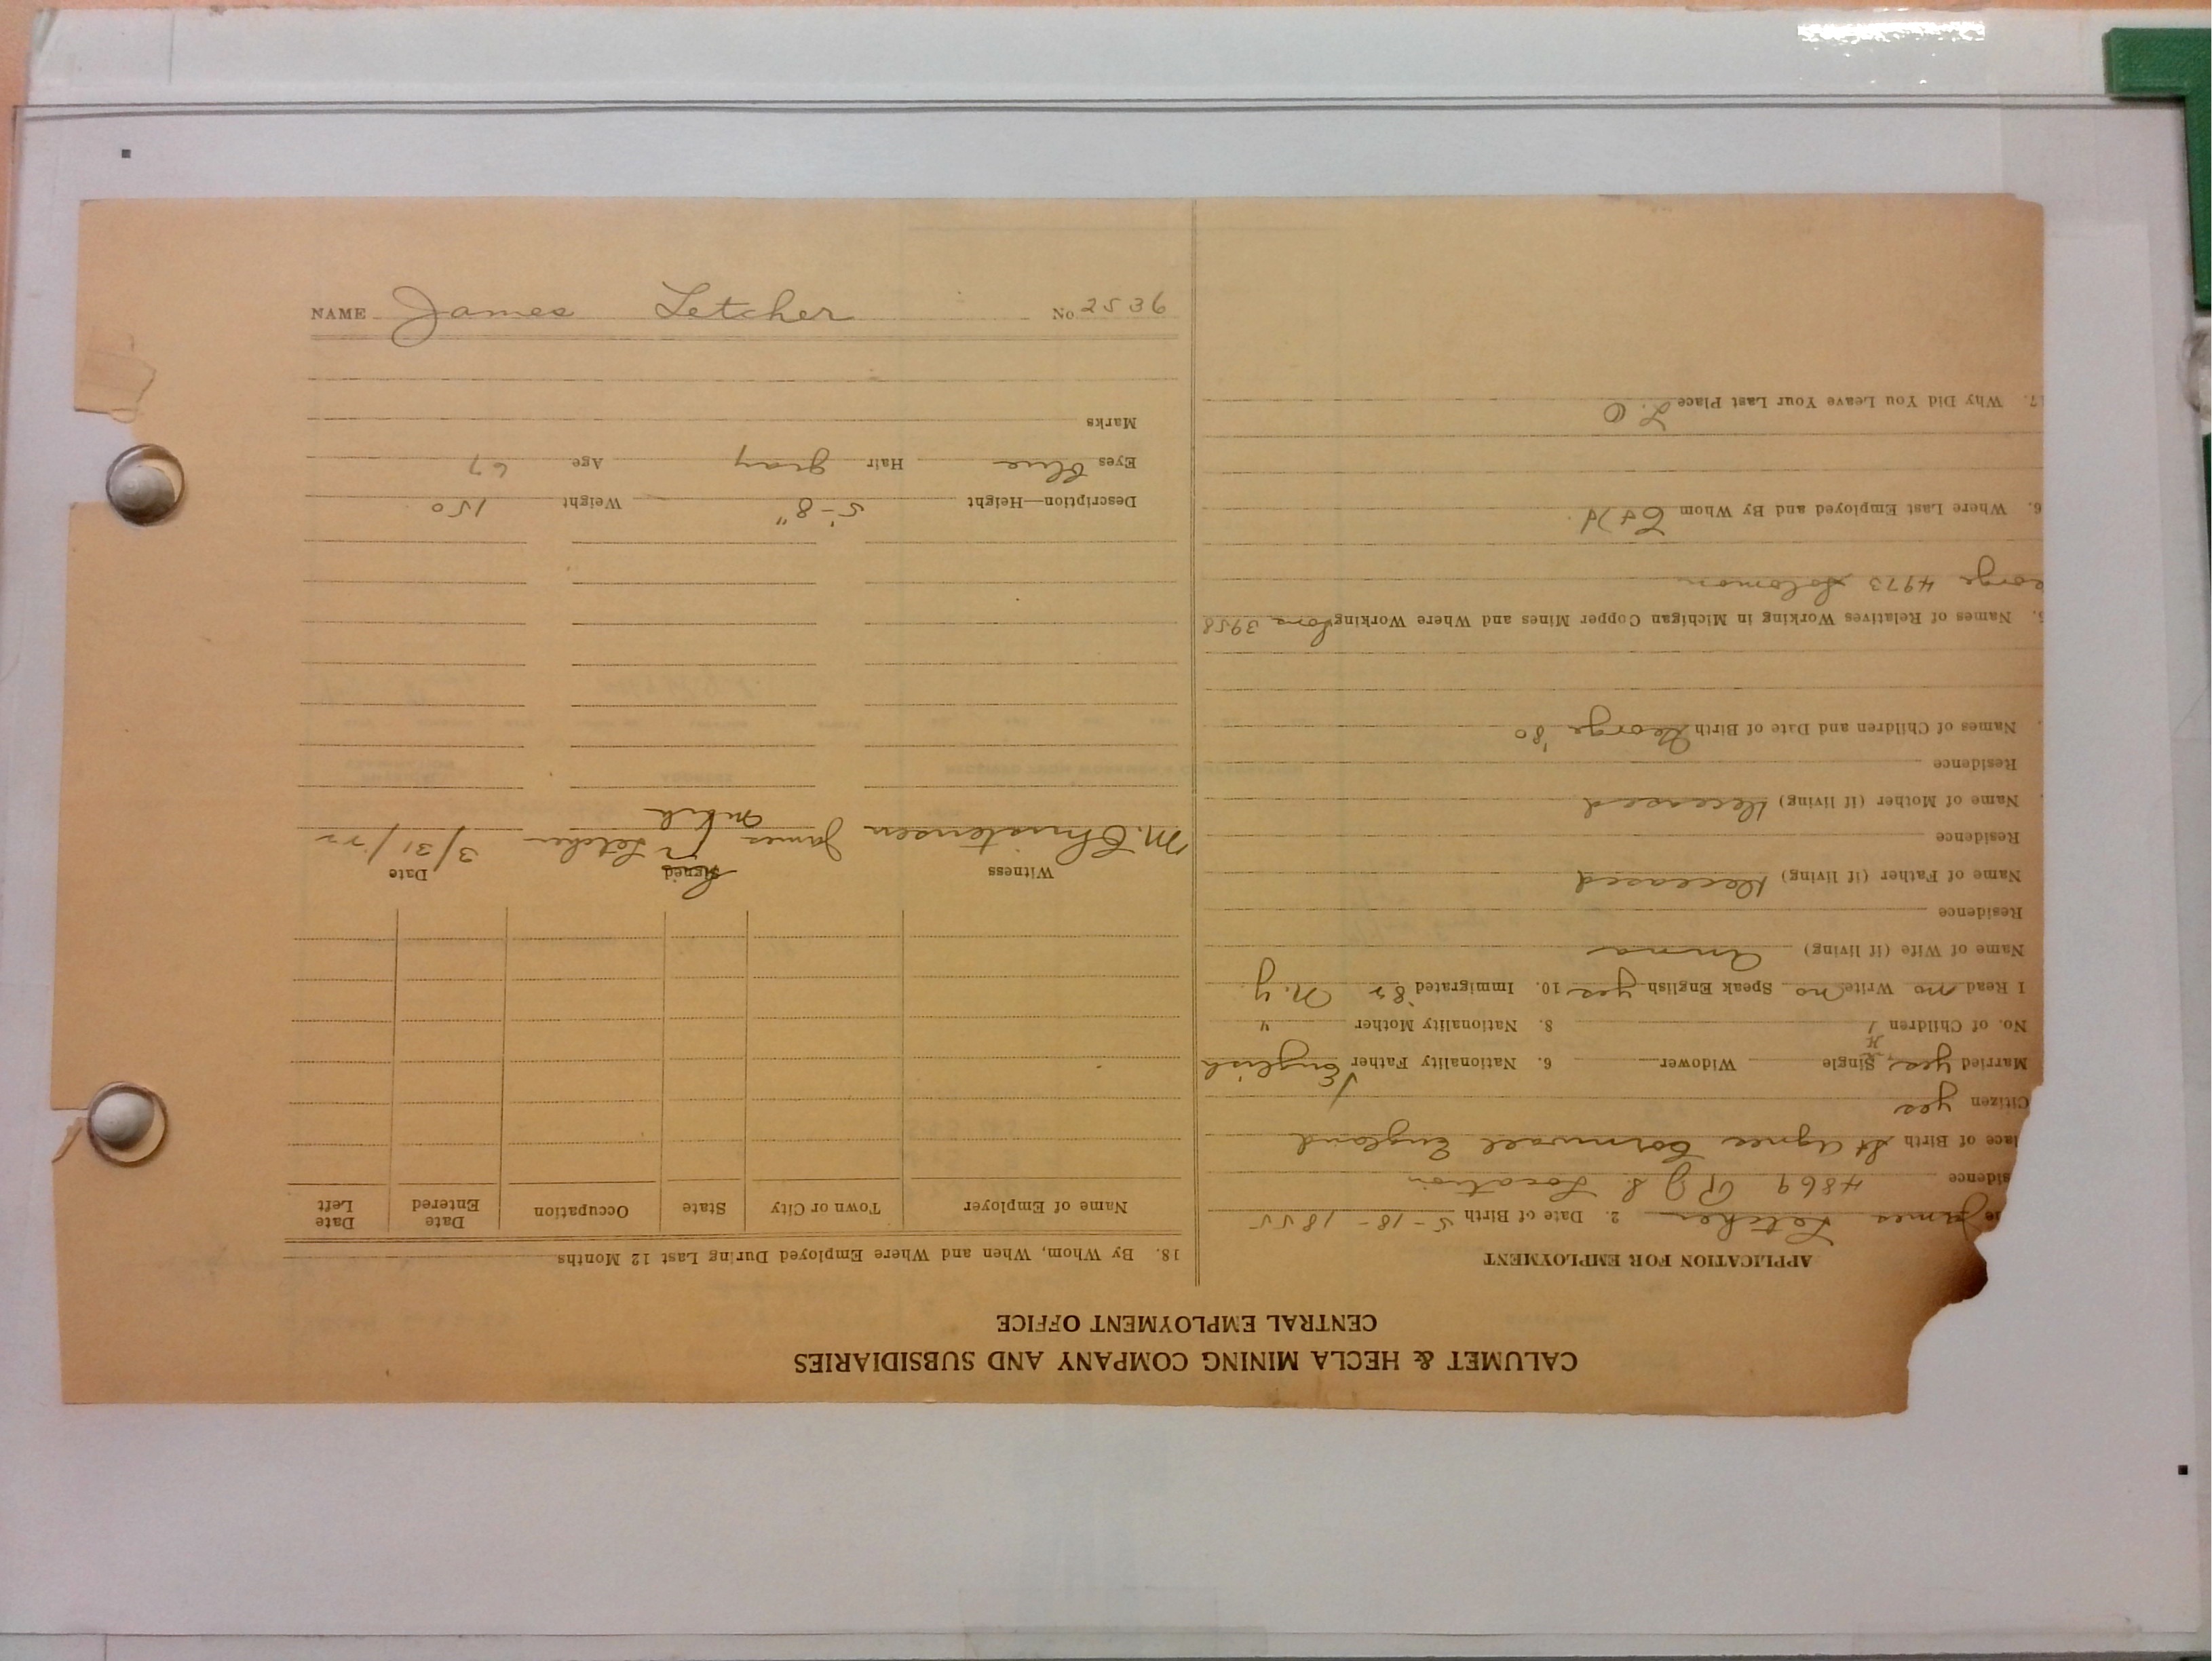 CALUMET & HECLA MINING COMPANY AND SUBSIDIARIES
CENTRAL EMPLOYMENT OFFICE
APPLICATION FOR EMPLOYMENT
James Letcher 2. Date of Birth 5-18-1855
sidence 4869 Location
lace of Birth St Agnes Cornwall England
Citizen yes
Married yes Single Widower 6. Nationality Father English
No. of Children 1 8. Nationality Mother "
I Read no Write no Speak English yes 10. Immigrated '82 N.Y.
Name of Wife (if living) Anna
Residence
Name of Father (if living) Deceased
Residence
Name of Mother (if living) Deceased
Residence
Names of Children and Date of Birth George '80
Names of Relatives Working in Michigan Copper Mines and Where Working Sons 3958
eorge 4973 Solomon
6. Where Last Employed and By Whom C & H
7. Why Did You Leave Your Last Place L.O
18. By Whom, When and Where Employed During Last 12 Months
Name of Employer Town or City State Occupation Date Entered Date Left
Witness Signed Date
M. Christensen James X Letcher 3/31/22
Description—Height 5'-8" Weight 150
Eyes blue Hair gray Age 67
Marks
NAME James Letcher No 2536